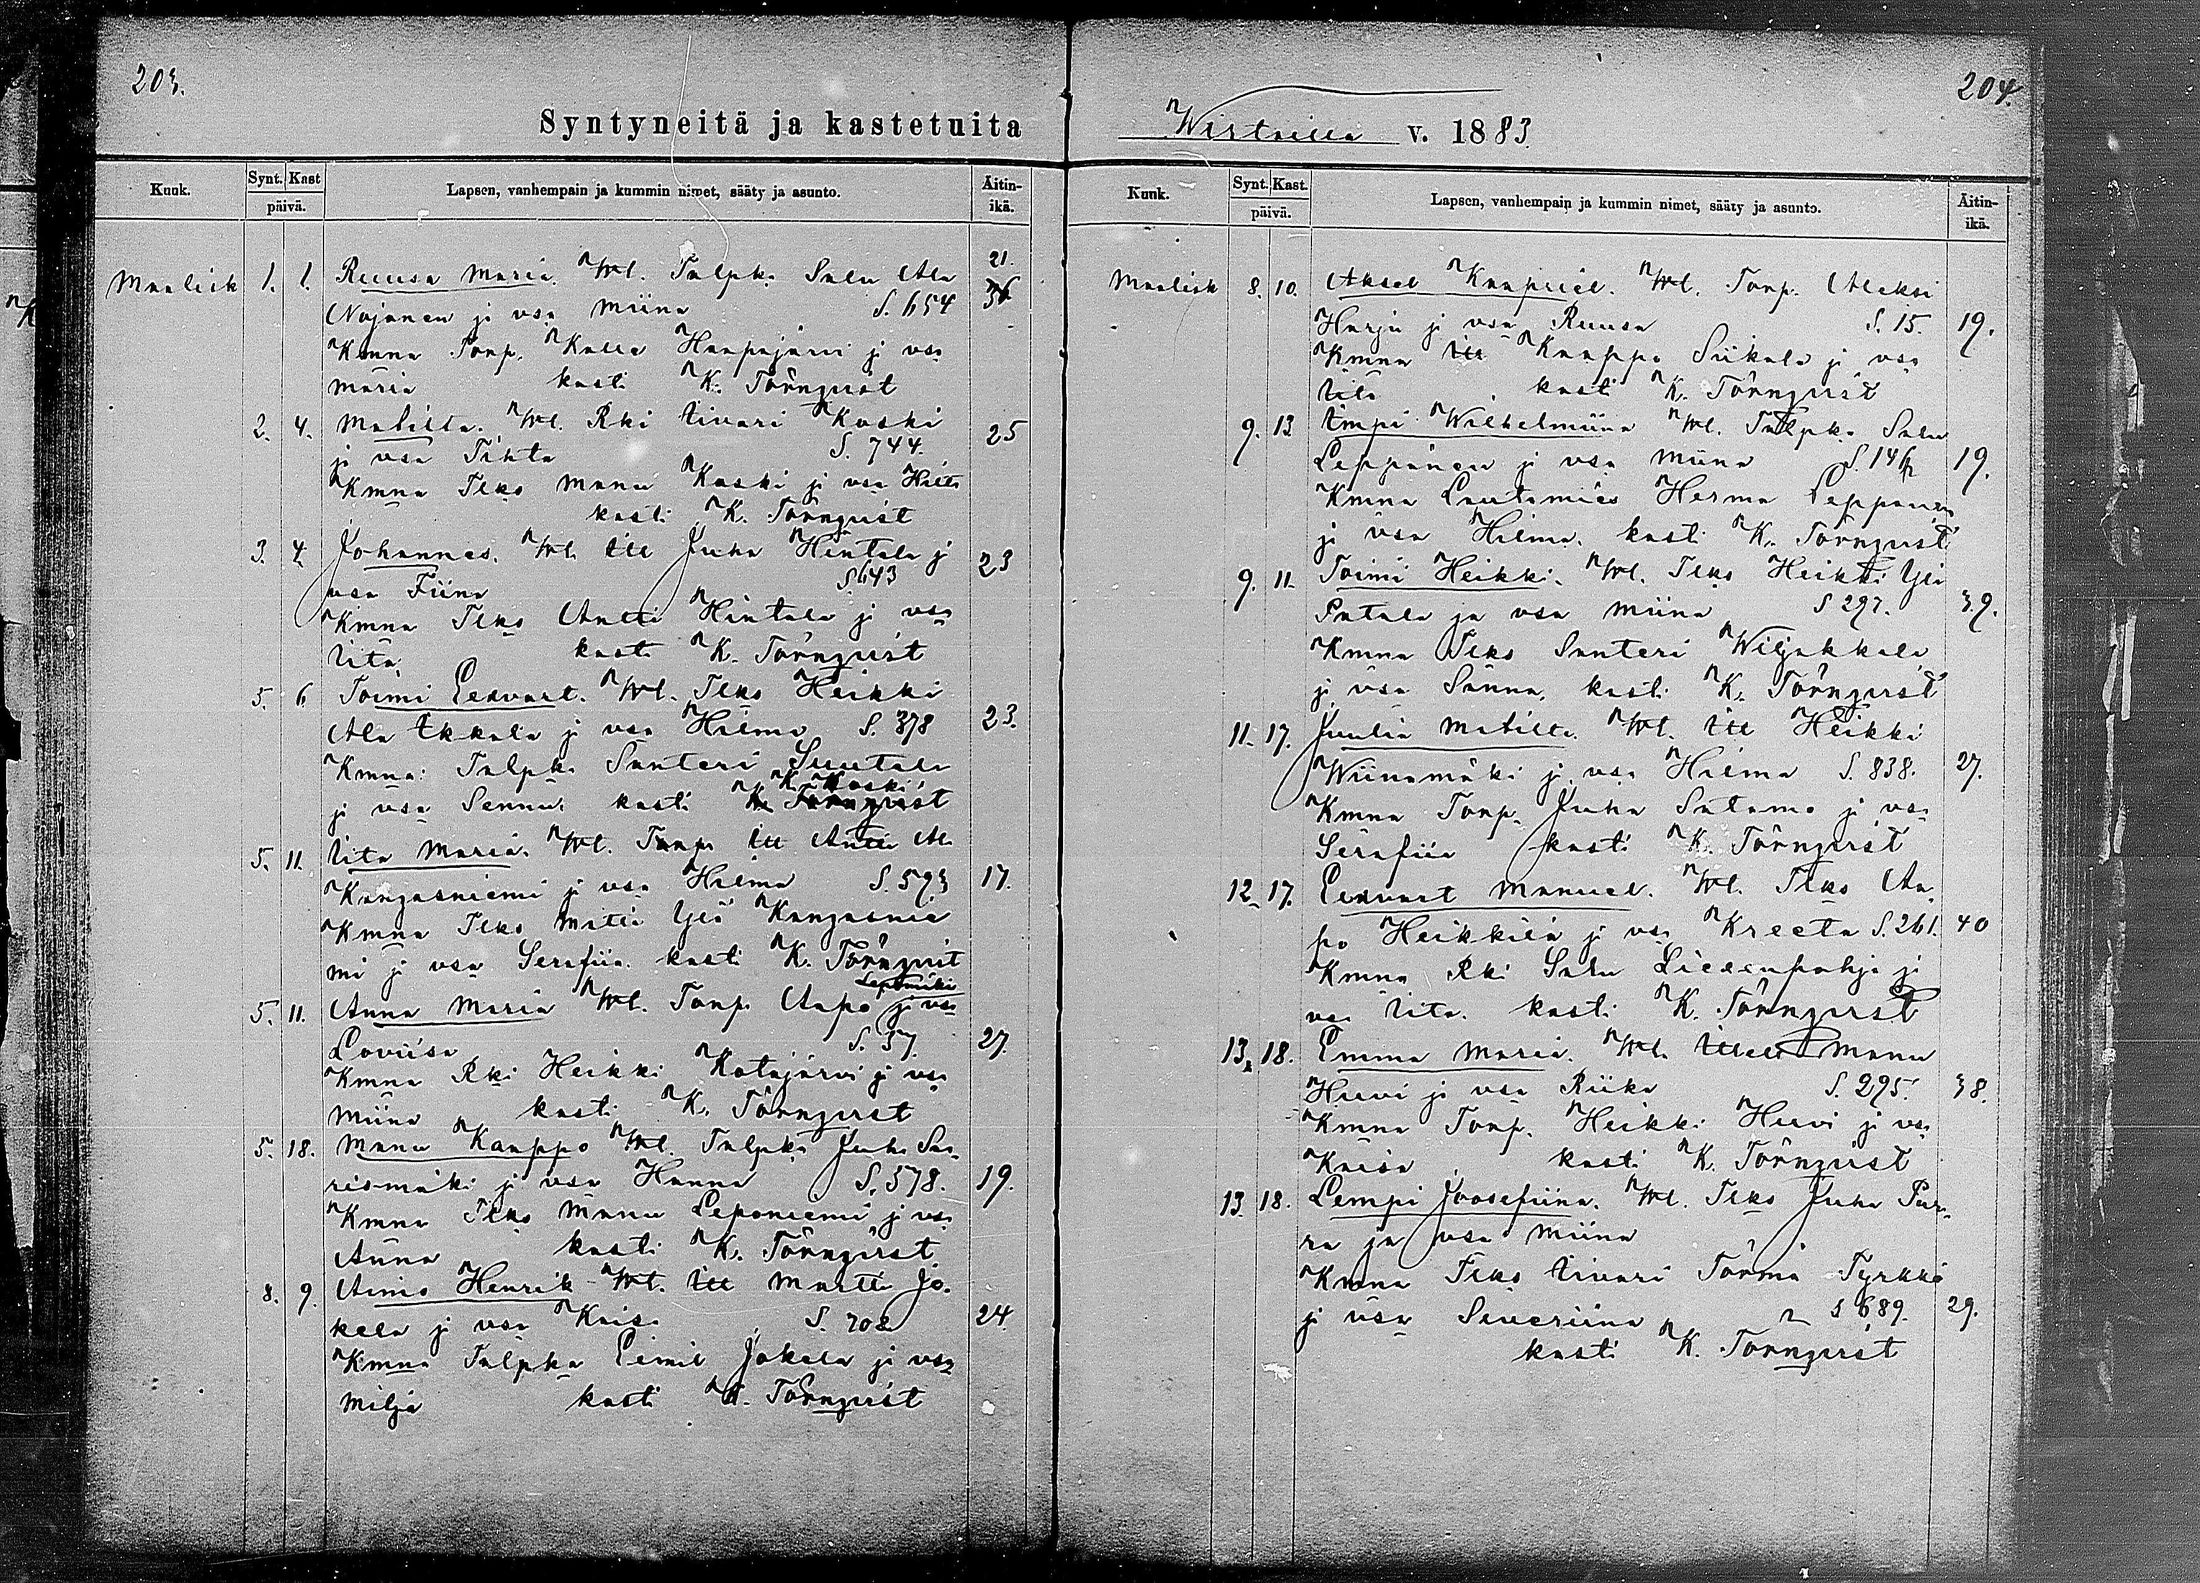 203.
Syntyneitä ja kastetuita
Kuuk. Synt. Kast päivä. Lapsen, vanhempain ja kummin nimet, sääty ja asunto. Äitin-ikä.
Maalisk 1. 1. Ruusa Maria. Wl. Talpka Salu Ala 21.
Nojanen ja vsa Miina S. 654
Kmna Torp. Kalle Haapajärvi ja vsa
Maria kasti K. Törnqvist
2. 4. Matilta. Wl. Rki Iivari Koski 25
ja vsa Tilta S. 744.
Kmna Tlks Manu Koski ja vsa
kasti K. Törnqvist
3. 4. Johannes. Wl. Itl Juha Hintala j 23
vsa Fiina S 643
Kmna Tlks Antti Hintala ja vsa
Iita kasti K. Törnqvist
5. 6 Toimi Eedvart. Wl. Tlks Heikki
Ala Ikkala j vsa Hilma S. 378 23.
Kmna: Talpk. Santeri Suutala
j vsa Senna kasti K. Koski
5. 11. Iita Maria. Wl. Itl Antti Al.
Kangasniemi j vsa Hilma S. 593 17.
Kmna Tlks Matti Yli Kangasnie
mi j vsa Serafiia kasti K. Törnqvist
Lepomäki
5. 11. Anna Maria Wl. Torp. Aapo j vsa
Loviisa S. 37. 27.
Kmna Rki Heikki Kotajärvi j vsa
Miina kasti K. Törnqvist
5. 18. Manu Kaappo Wl. Talpka Juha Saa
rismäki j vsa Hanna S. 578. 19.
Kmna Tlks Manu Leponiemi j vsa
Anna kasti K. Törnqvist
8. 9. Aimo Henrik Wl. Itl Martti Jo.
kela j vsa Kaisa S. 708 24.
Kmna Talpka Eemil Jokela ja vsa
Milja kasti K. Törnqvist
204.
Wirtailla v. 1883.
Kuuk. Synt. Kast. päivä. Lapsen, vanhempain ja kummin nimet, sääty ja asunto. Äitin-ikä.
Maalisk 8. 10. Aksel Kaapriel. Wl. Torp. Aleksi
Harju j vsa Ruusa S. 15. 19.
Kmna Itl Kaappo Siikala j vsa
kasti K. Törnqvist
9. 13 Impi Wilhelmiina Wl. Talpk. Salu
Leppänen j vsa Miina 19.
Kmna Lautamies Herma Leppänen
j vsa Hilma. kasti K. Törnqvist
9. 11. Toimi Heikki. Wl. Tlks Heikki Yli
Patala ja vsa Miina S 297. 39.
Kmna Tlks Santeri Wiljakkala
j vsa Sanna. kasti K. Törnqvist
11. 17. Juulia Matilta. Wl. Itl Heikki
Wiinamäki j vsa Hilma S. 838. 27.
Kmna Torp. Juha Satamo j vsa
Serafiia kasti K. Törnqvist
12. 17. Eedvart Manuel. Wl. Tlks Aa
po Heikkilä j vsa Kreeta S. 261. 40
Kmna Rki Salu Liesenpohja j
vsa Iita. kasti K. Törnqvist
13. 18. Emma Maria. Wl. Manu
Hervi j vsa Riika S. 295. 38.
Kmna Torp. Heikki Hervi j vsa
Kaisa kasti K. Törnqvist
13. 18. Lempi Joosefiina. Wl. Tlks Juha Pur-
ra ja vsa Miina
Kmna Tlks Iivari Törmä Tyrkkö
j vsa Severiina S 689. 29.
kasti K. Törnqvist